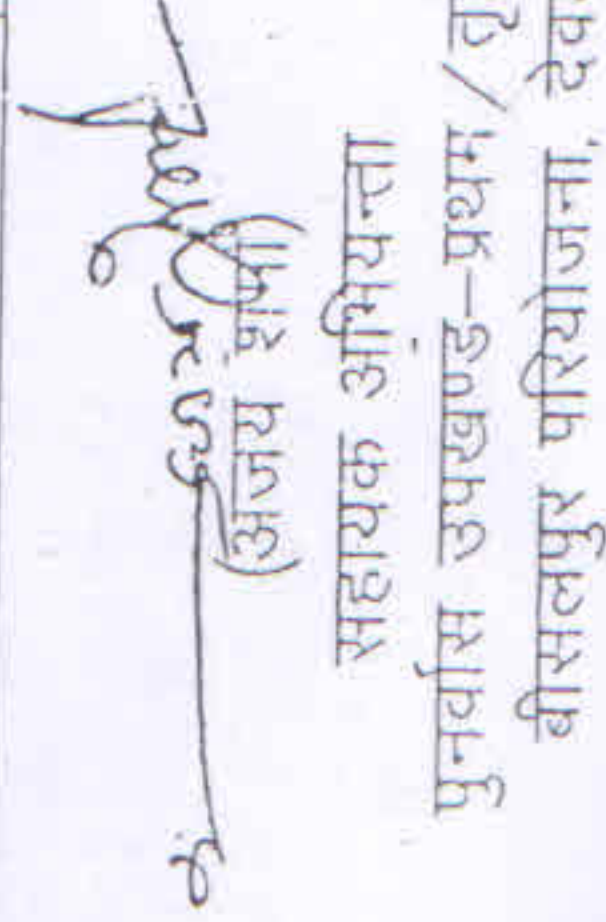 (अजय शर्मा)
सहायक अभियन्ता
पुनर्वास उपखण्ड–प्रथम/
बीसलपुर परियोजना,